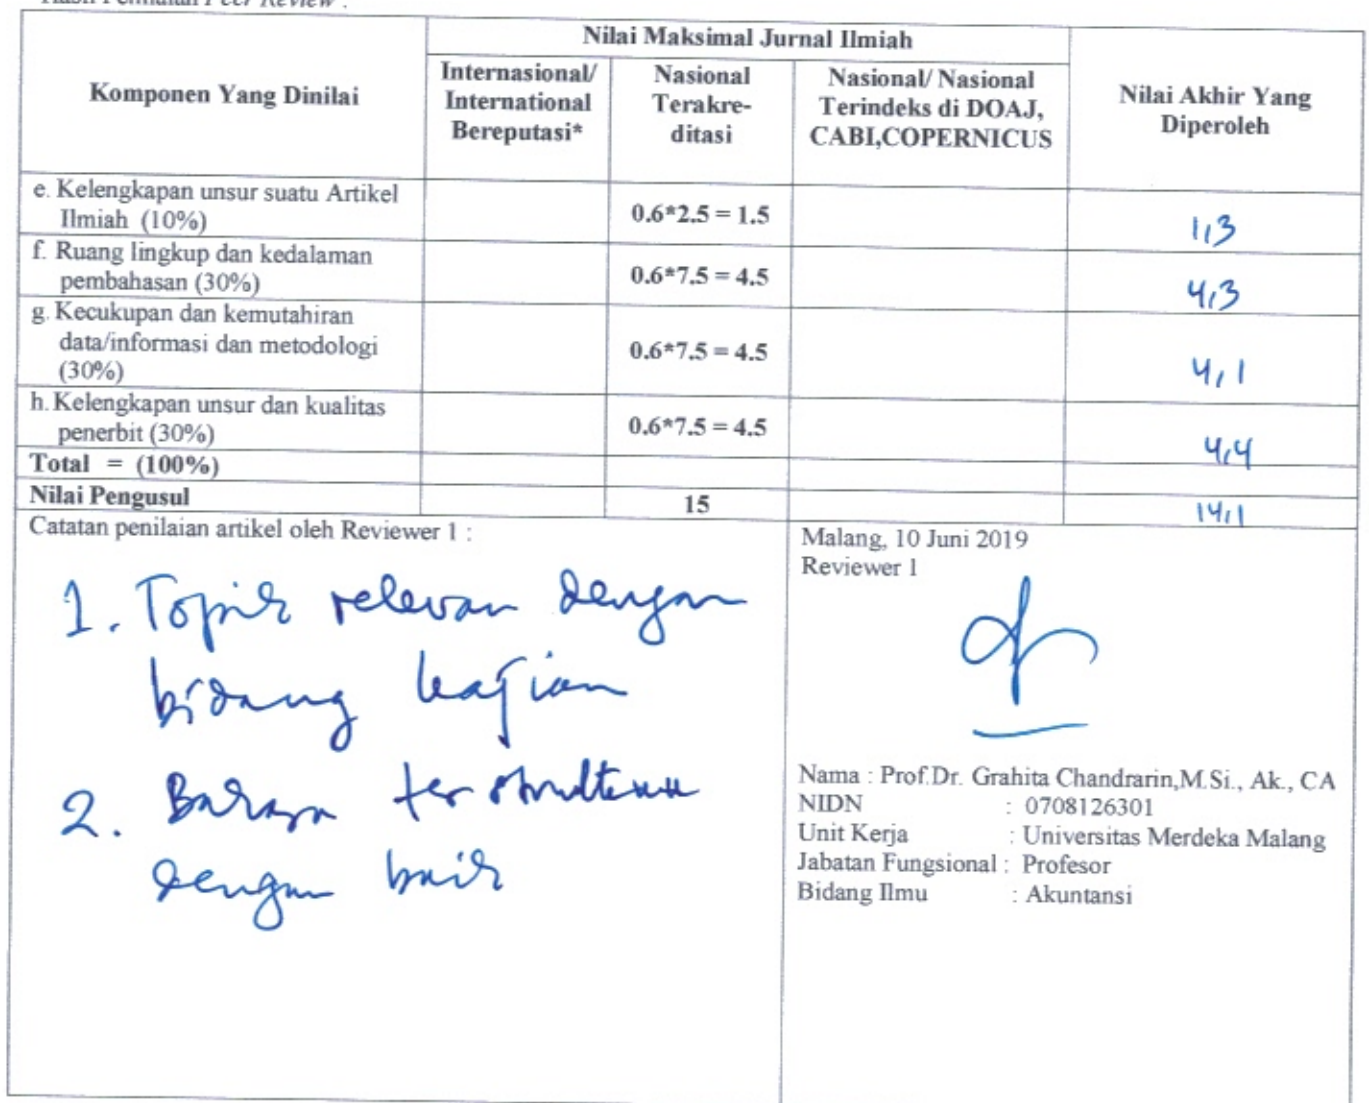 Hasil Penilaian Peer Review :
Nilai Maksimal Jurnal Ilmiah
Komponen Yang Dinilai
Internasional/
International
Bereputasi*
Nasional
Terakre-
ditasi
Nasional/ Nasional
Terindeks di DOAJ,
CABI,COPERNICUS
Nilai Akhir Yang
Diperoleh
e. Kelengkapan unsur suatu Artikel
Ilmiah (10%)
0.6*2.5 = 1.5
1,3
f. Ruang lingkup dan kedalaman
pembahasan (30%)
0.6*7.5 = 4.5
4,3
g. Kecukupan dan kemutahiran
data/informasi dan metodologi
(30%)
0.6*7.5 = 4.5
4,1
h. Kelengkapan unsur dan kualitas
penerbit (30%)
0.6*7.5 = 4.5
4,4
Total = (100%)
Nilai Pengusul
15
14,1
Catatan penilaian artikel oleh Reviewer 1 :
1. Topik relevan dengan
bidang kajian
2. Bahasa terstruktur
dengan baik
Malang, 10 Juni 2019
Reviewer 1
Nama : Prof.Dr. Grahita Chandrarin,M.Si., Ak., CA
NIDN : 0708126301
Unit Kerja : Universitas Merdeka Malang
Jabatan Fungsional : Profesor
Bidang Ilmu : Akuntansi